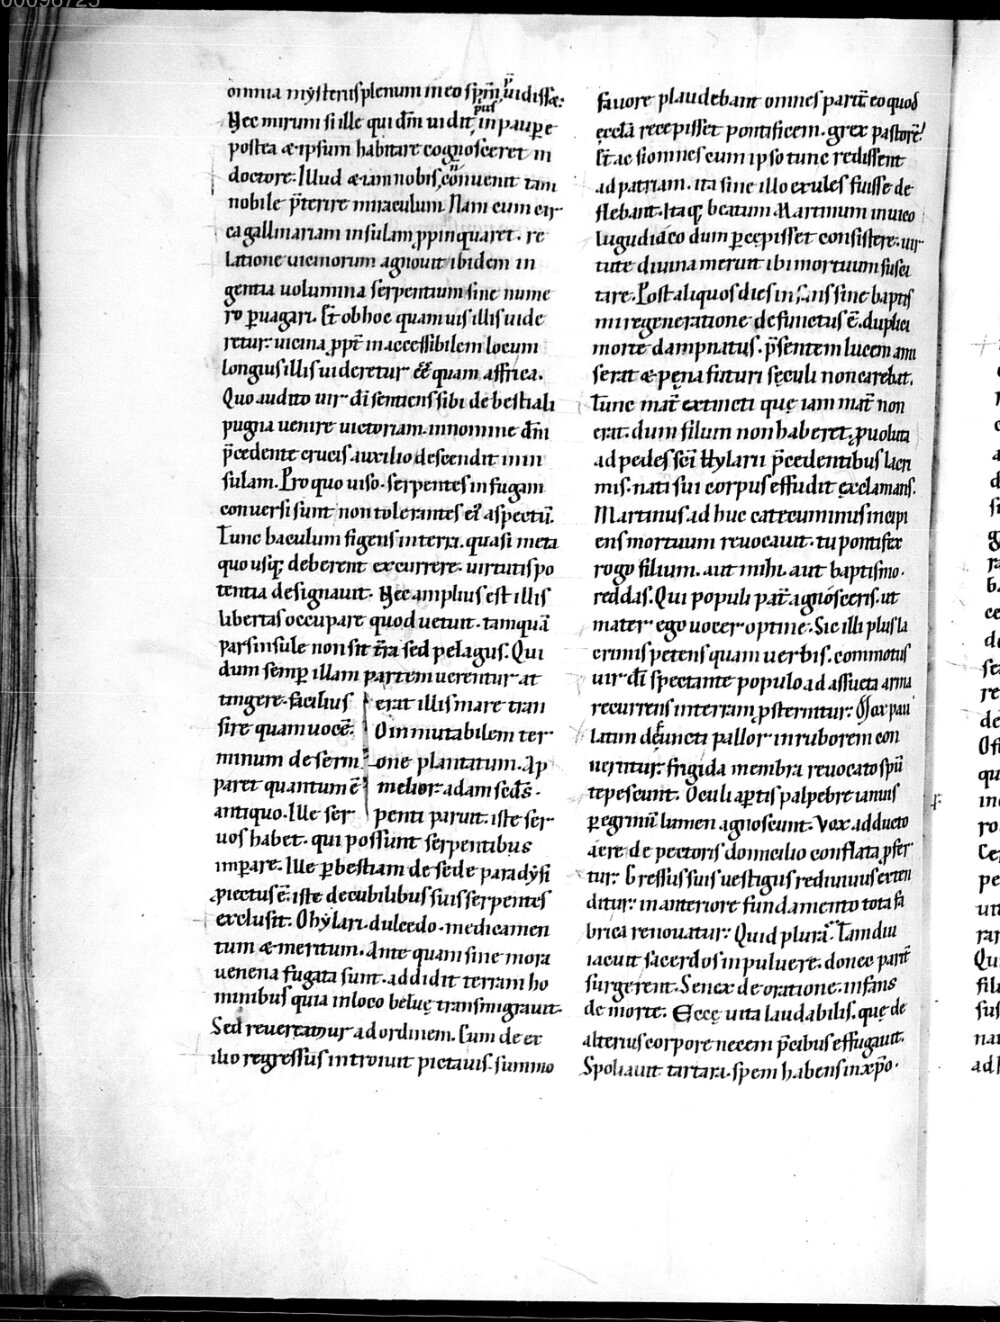 omnia mysteriis plenum in eo sp̄m̄ p̄uidisse:
Hec mirum si ille qui dn̄m uidit p̄us in paupere
postea & ipsum habitare cognosceret in
doctore. Illud & iam nobis conuenit tam
nobile p̄terire miraculum. Nam cum cir
ca gallinariam insulam ꝓpinquaret. re
latione uicinorum agnouit ibidem in
gentia uolumina serpentium sine nume
ro ꝑuagari. Et ob hoc quamuis illis uide
retur uicina ꝓpt̄ inaccessibilem locum
longius illis uideretur eē quam affrica.
Quo audito uir dī sentiens sibi de bestiali
pugna uenire uictoriam. in nomine dn̄i
p̄cedente crucis auxilio descendit in in
sulam. Pro quo uiso. serpentes in fugam
conuersi sunt non tolerantes ei' aspectū.
Tunc baculum figens in terra. quasi meta
quo usq; deberent excurrere. uirtutis po
tentia designauit. Nec amplius est illis
libertas occupare quod uetuit. tamquā
pars insule non sit tr̄ra sed pelagus. Qui
dum semꝑ illam partem uerentur at
tingere. facilius erat illis mare tran
sire quam uocē. O inmutabilem ter
minum de serm one plantatum. Ap
paret quantum ē melior adam sed̄s.
antiquo. Ille ser penti paruit. iste ser
uos habet. qui possunt serpentibus
imꝑare. Ille ꝑ bestiam de sede paradysi
ꝓiectus ē. iste de cubilibus suis serpentes
exclusit. O hylari dulcedo. medicamen
tum & meritum. Ante quam sine mora
uenena fugata sunt. addidit terram ho
minibus quia in loco beluę transmigrauit.
Sed reuertamur ad ordinem. Cum de ex
ilio regressus introiuit pictauis. summo
fauore plaudebant omnes parit̄ eo quod
ęccl̄a recepisset pontificem. grex pastorē.
Et ac si omnes cum ipso tunc redissent
ad patriam. ita sine illo exules fuisse de
flebant. Itaq; beatum Martinum in uico
lugudiaco dum ꝑcępisset consistere. uir
tute diuina meruit ibi mortuum susci
tare. Post aliquos dies infans sine baptis
mi regeneratione defunctus ē. duplici
morte dampnatus. p̄sentem lucem ami
serat & pęna futuri sęculi non carebat.
Tunc mat̄ extincti quę iam mat̄ non
erat. dum filium non haberet. ꝓuoluta
ad pedes sc̄i Hylarii p̄cedentibus lacri
mis. nati sui corpus effudit exclamans.
Martinus adhuc catecuminus incipi
ens mortuum reuocauit. tu pontifex
rogo filium. aut mihi. aut baptismo.
reddas. Qui populi pat̄ agnosceris. ut
mater ego uocer optine. Sic illi plus la
crimis petens quam uerbis. commotus
uir dī spectante populo ad assueta arma
recurrens in terram ꝓsternitur. Mox pau
latim defuncti pallor in ruborem con
uertitur. frigida membra reuocato spū
tepescunt. Oculi aꝑtis palpebre ianuis
ꝑegrinū lumen agnoscunt. Vox adducto
aere de pectoris domicilio conflata ꝓfer
tur. Gressus suis uestigiis rediuiuus exten
ditur. in anteriore fundamento tota fa
brica renouatur. Quid plura. Tamdiu
iacuit sacerdos in puluere. donec parit̄
surgerent. Senex de oratione. infans
de morte. Ecce uita laudabilis. quę de
alterius corpore necem p̄cibus effugauit.
Spoliauit tartara. spem habens in xp̄o.